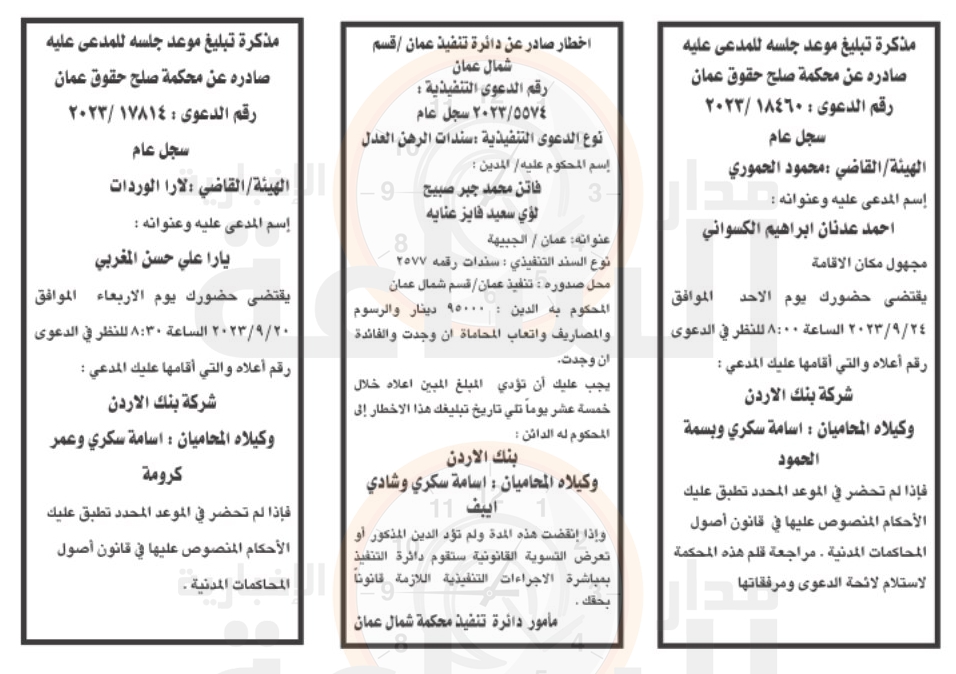 مذكرة تبليغ موعد جلسه للمدعى عليه
صادره عن محكمة صلح حقوق عمان
رقم الدعوى : ١٨٤٦٠ /٢٠٢٣
سجل عام
الهيئة/القاضي :محمود الحموري
إسم المدعى عليه وعنوانه :
احمد عدنان ابراهيم الكسواني
مجهول مكان الاقامة
يقتضى حضورك يوم الاحد الموافق
٢٠٢٣/٩/٢٤ الساعة ٨:٠٠ للنظر في الدعوى
رقم أعلاه والتي أقامها عليك المدعي :
شركة بنك الاردن
وكيلاه المحاميان : اسامة سكري وبسمة
الحمود
فإذا لم تحضر في الموعد المحدد تطبق عليك
الأحكام المنصوص عليها في قانون أصول
المحاكمات المدنية . مراجعة قلم هذه المحكمة
لاستلام لائحة الدعوى ومرفقاتها
اخطار صادر عن دائرة تنفيذ عمان /قسم
شمال عمان
رقم الدعوى التنفيذية :
٢٠٢٣/٥٥٧٤ سجل عام
نوع الدعوى التنفيذية :سندات الرهن العدل
إسم المحكوم عليه/ المدين :
فاتن محمد جبر صبيح
لؤي سعيد فايز عنايه
عنوانه: عمان / الجبيهة
نوع السند التنفيذي : سندات رقمه ٢٥٧٧
محل صدوره : تنفيذ عمان/قسم شمال عمان
المحكوم به الدين : ٩٥٠٠٠ دينار والرسوم
والمصاريف واتعاب المحاماة ان وجدت والفائدة
ان وجدت.
يجب عليك أن تؤدي المبلغ المبين اعلاه خلال
خمسة عشر يوماً تلي تاريخ تبليغك هذا الاخطار إلى
المحكوم له الدائن :
بنك الاردن
وكيلاه المحاميان : اسامة سكري وشادي
ايبف
وإذا إنقضت هذه المدة ولم تؤد الدين المذكور أو
تعرض التسوية القانونية ستقوم دائرة التنفيذ
بمباشرة الاجراءات التنفيذية اللازمة قانوناً
بحقك .
مأمور دائرة تنفيذ محكمة شمال عمان
مذكرة تبليغ موعد جلسه للمدعى عليه
صادره عن محكمة صلح حقوق عمان
رقم الدعوى : ١٧٨١٤ /٢٠٢٣
سجل عام
الهيئة/القاضي :لارا الوردات
إسم المدعى عليه وعنوانه :
يارا علي حسن المغربي
يقتضى حضورك يوم الاربعاء الموافق
٢٠٢٣/٩/٢٠ الساعة ٨:٣٠ للنظر في الدعوى
رقم أعلاه والتي أقامها عليك المدعي :
شركة بنك الاردن
وكيلاه المحاميان : اسامة سكري وعمر
كرومة
فإذا لم تحضر في الموعد المحدد تطبق عليك
الأحكام المنصوص عليها في قانون أصول
المحاكمات المدنية .